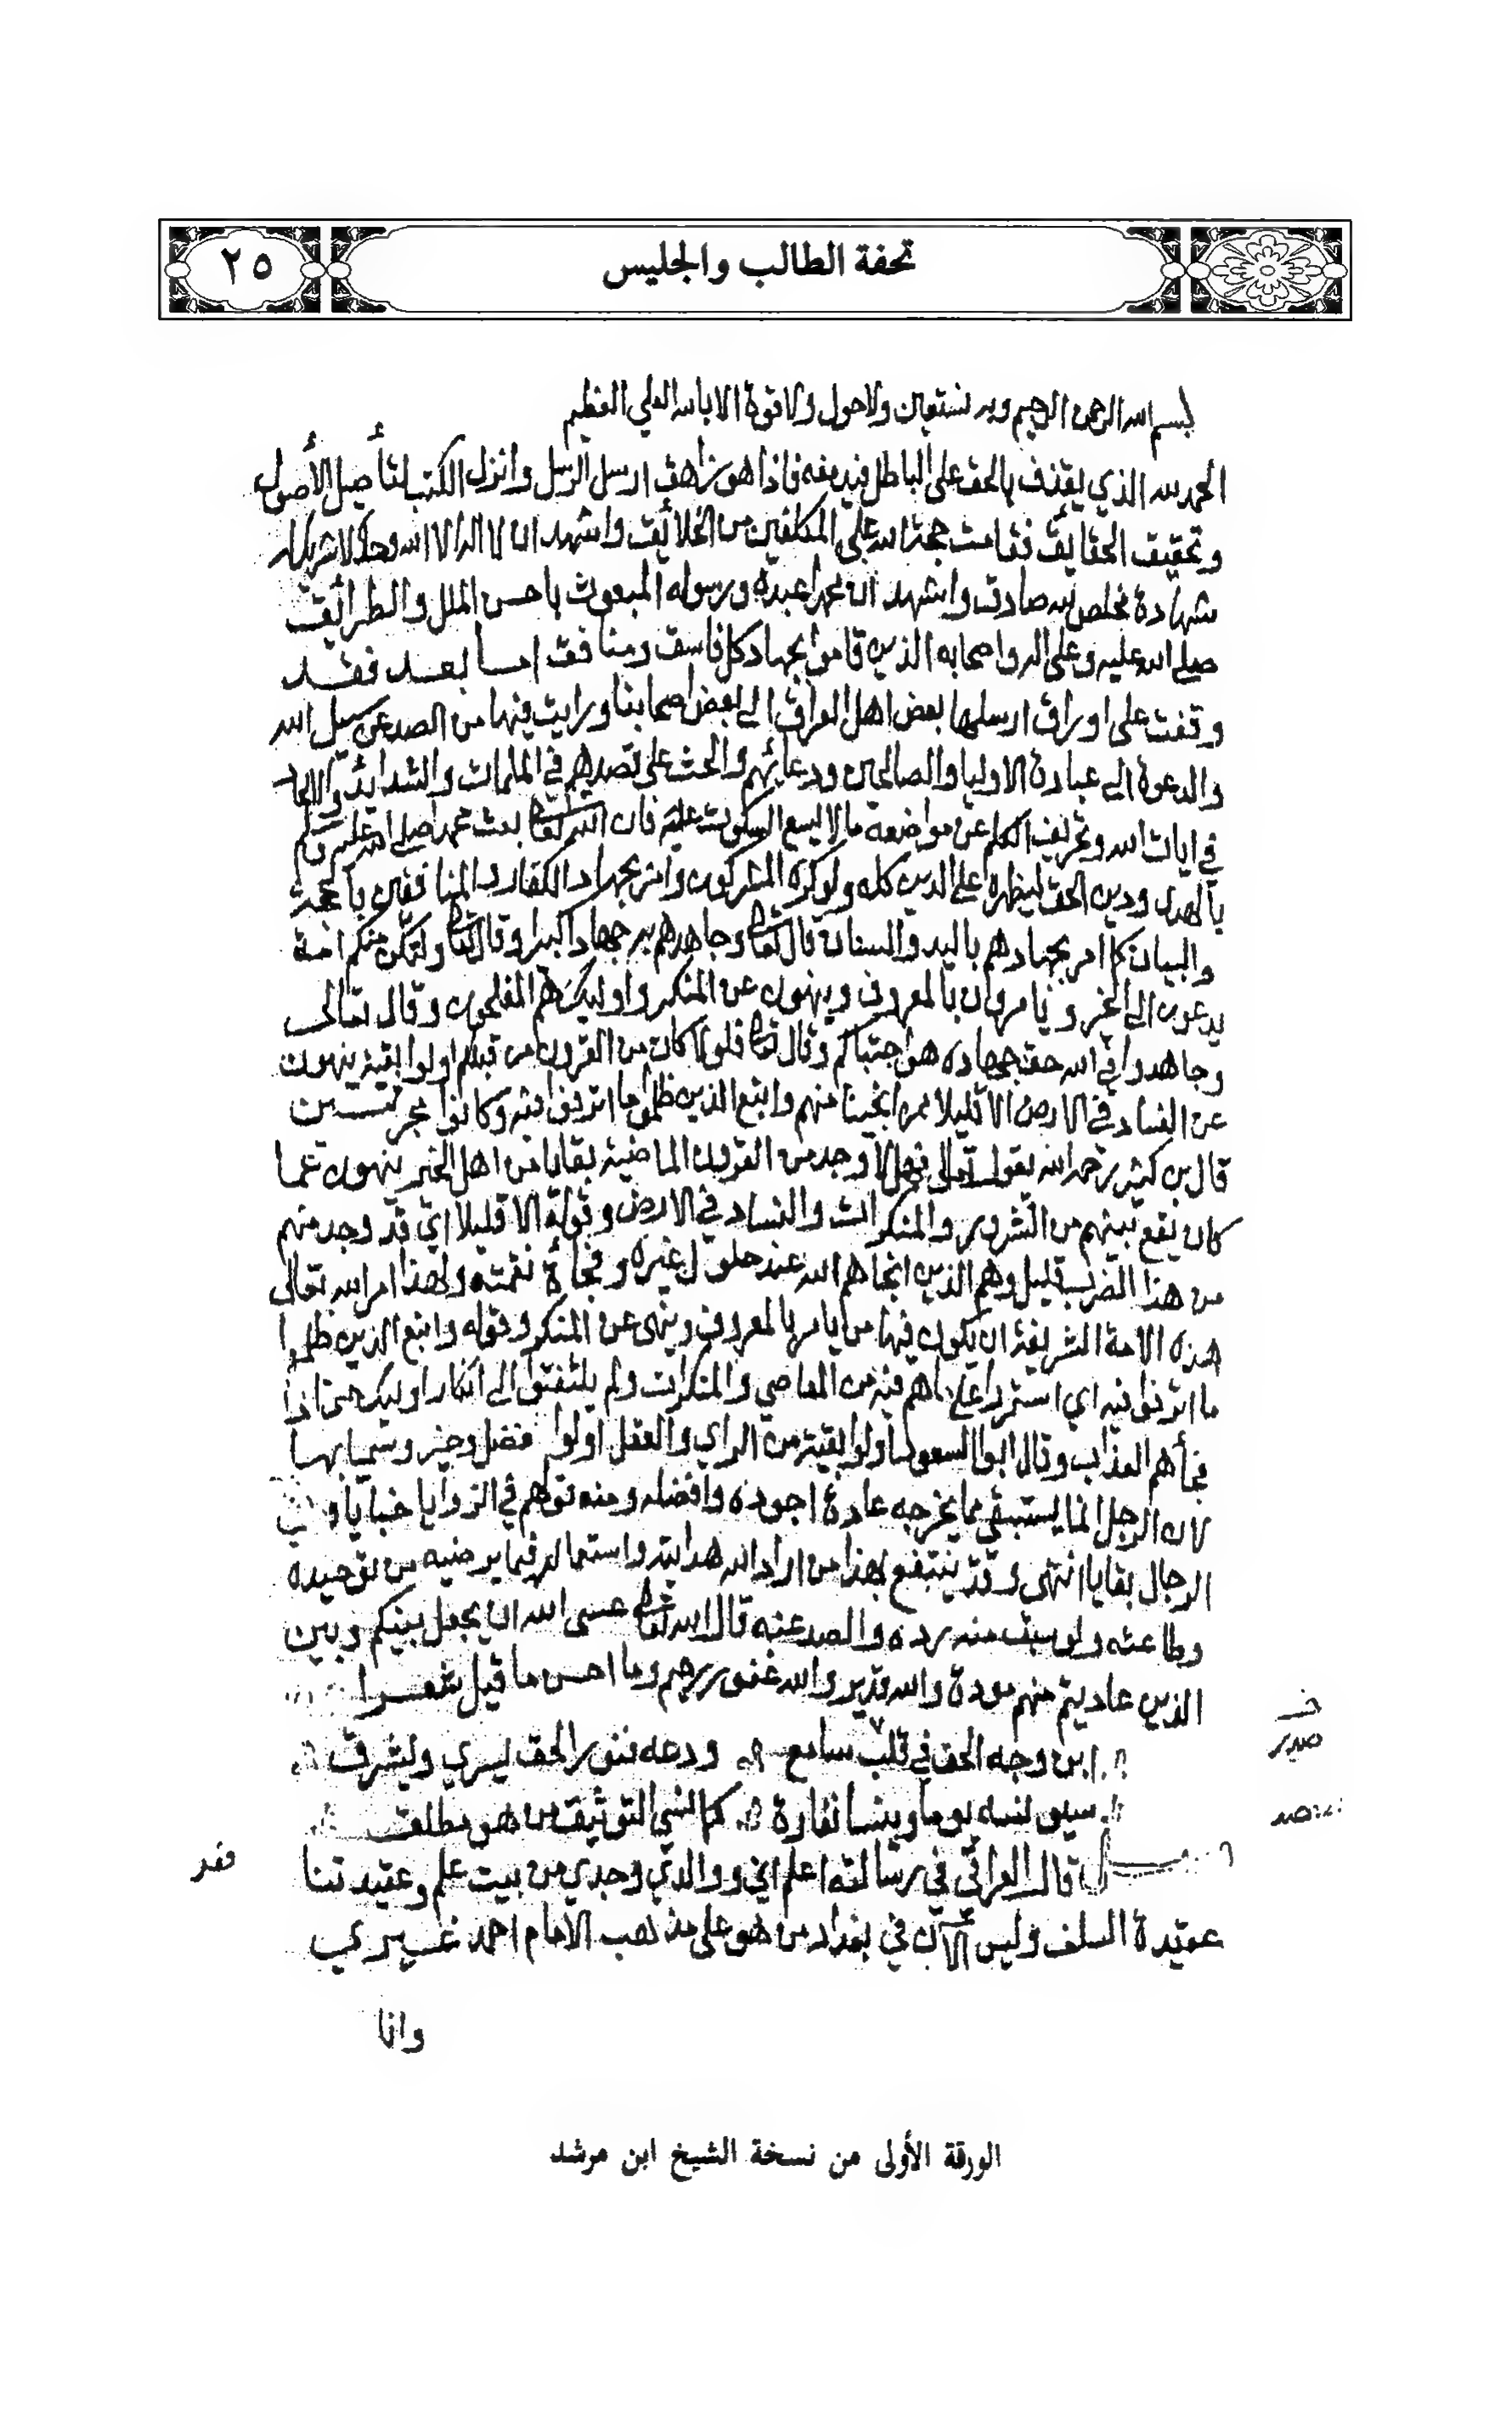 تحفة الطالب والجليس
٢٥
بسم الله الرحمن الرحيم وبه نستعين ولا حول ولا قوة الا بالله العلي العظيم
الحمد لله الذي يقذف بالحق على الباطل فيدمغه فاذا هو زاهق ارسل الرسل وانزل الكتب لتأصيل الأصول
وتحقيق الحقايق فقامت حجة الله على المكلفين من الخلائق واشهد ان لا اله الا الله وحده لا شريك له
شهادة مخلص لله صادق واشهد ان محمدا عبده ورسوله المبعوث باحسن الملل والطرائق
صلى الله عليه وعلى اله واصحابه الذين قاموا بجهاد كل فاسق ومنافق اما بعد فقد
وقفت على اوراق ارسلها بعض اهل العراق الى بعض اصحابنا ورايت فيها من الصد عن سبيل الله
والدعوة الى عبادة الاوليا والصالحين ودعائهم والحث على قصدهم في الملمات والشدايد والالحاد
في ايات الله وتحريف الكلم عن مواضعه ما لا يسع السكوت عليه فان الله تعالى بعث محمدا صلى الله عليه وسلم
بالهدى ودين الحق ليظهره على الدين كله ولو كره المشركون وامر بجهاد الكفار والمنافقين بالحجة
والبيان كما امر بجهادهم باليد والسنان قال تعالى وجاهدهم به جهادا كبيرا وقال تعالى ولتكن منكم امة
يدعون الى الخير ويامرون بالمعروف وينهون عن المنكر واوليك هم المفلحون وقال تعالى
وجاهدوا في الله حق جهاده هو اجتباكم وقال تعالى فلولا كان من القرون من قبلكم اولوا بقية ينهون
عن الفساد في الارض الا قليلا ممن انجينا منهم واتبع الذين ظلموا ما اترفوا فيه وكانوا مجرمين
قال بن كثير رحمه الله يقول تعالى فهلا وجد من القرون الماضية بقايا من اهل الخير ينهون عما
كان يقع بينهم من الشرور والمنكرات والفساد في الارض وقوله الا قليلا اي قد وجد منهم
من هذا الضرب قليل وهم الذين انجاهم الله عند حلول غيره وفجأة نقمته ولهذا امر الله تعالى
هذه الامة الشريفة ان يكون فيها من يامر بالمعروف وينهى عن المنكر وقوله واتبع الذين ظلموا
ما اترفوا فيه اي استمروا على ما هم فيه من المعاصي والمنكرات ولم يلتفتوا الى انكار اوليك حتى اذا
فجأهم العذاب وقال ابو السعود اولوا بقية من الراي والعقل اولوا فضل وخير وسميا بها
لان الرجل انما يستبقي مما يخرجه عادة اجوده وافضله ومنه قولهم في الزوايا خبايا وفي
الرجال بقايا انتهى وقد ينتفع بهذا من اراد الله هدايته واستماله فيما يرضيه من توحيده
وطاعته ولو سبق منه رده والصد عنه قال الله تعالى عسى الله ان يجعل بينكم وبين
الذين عاديتم منهم مودة والله قدير والله غفور رحيم وما احسن ما قيل شعرا
ابن وجه الحق في قلب سامع ودعه فنور الحق يسري ويشرق
صدر
سيونسه يوما وينسا نفاره كما نسي التوثيق من هو مطلق
قال العراقي في رسالته اعلم اني ووالدي وجدي من بيت علم وعقيدتنا
عقيدة السلف وليس الآن في بغداد من هو على مذهب الامام احمد غيري
وانا
الورقة الأولى من نسخة الشيخ ابن مرشد